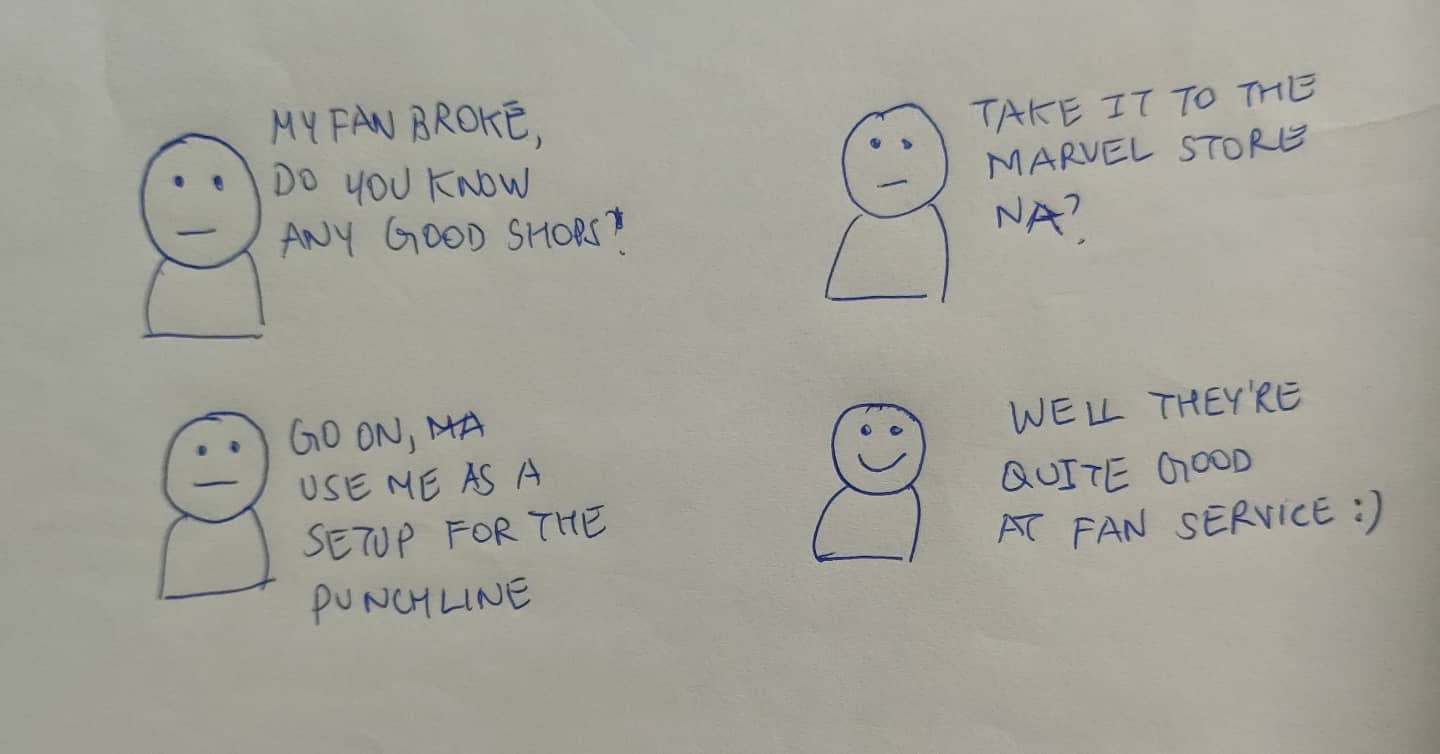 MY FAN BROKE,
DO YOU KNOW
ANY GOOD SHOPS?
TAKE IT TO THE
MARVEL STORE
NA?
GO ON, MA
USE ME AS A
SETUP FOR THE
PUNCHLINE
WELL THEY'RE
QUITE GOOD
AT FAN SERVICE :)